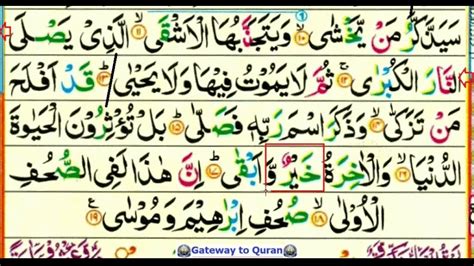 سَيَذَّكَّرُ مَنْ يَّخْشٰى ۙ﴿۱۰﴾ وَيَتَجَنَّبُهَا الْاَشْقَى ۙ﴿۱۱﴾ الَّذِىْ يَصْلَى
النَّارَ الْكُبْرٰى ۚ﴿۱۲﴾ ثُمَّ لَا يَمُوْتُ فِيْهَا وَلَا يَحْيٰى ؕ﴿۱۳﴾ قَدْ اَفْلَحَ
مَنْ تَزَكّٰى ۙ﴿۱۴﴾ وَذَكَرَ اسْمَ رَبِّهٖ فَصَلّٰى ؕ﴿۱۵﴾ بَلْ تُؤْثِرُوْنَ الْحَيٰوةَ
الدُّنْيَا ۖ﴿۱۶﴾ وَالْاٰخِرَةُ خَيْرٌ وَّ اَبْقٰى ؕ﴿۱۷﴾ اِنَّ هٰذَا لَفِى الصُّحُفِ
الْاُوْلٰى ۙ﴿۱۸﴾ صُحُفِ اِبْرٰهِيْمَ وَمُوْسٰى ﴿۱۹﴾
Gateway to Quran